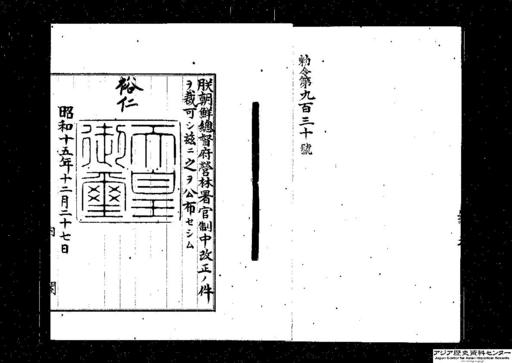 勅令第九百三十號
朕朝鮮總督府營林署官制中改正ノ件
ヲ裁可シ玆ニ之ヲ公布セシム
裕仁
天皇
御璽
昭和十五年十二月二十七日
内閣
アジア歴史資料センター
Japan Center for Asian Historical Records